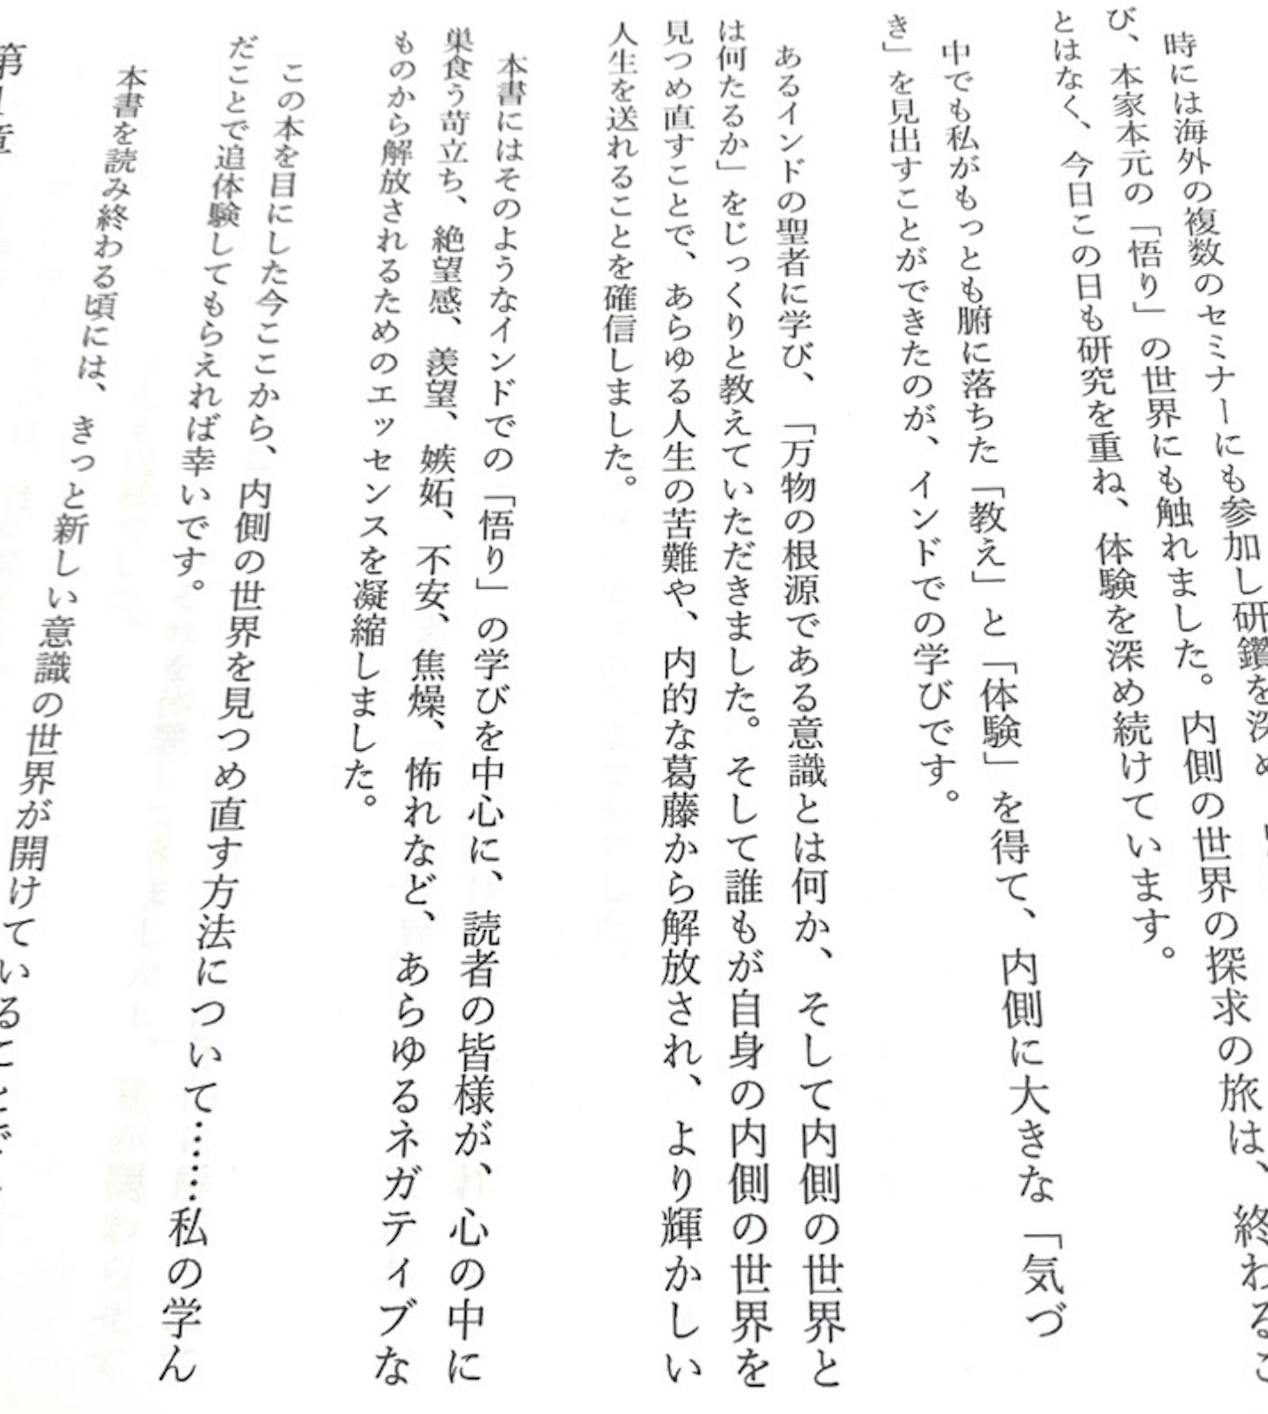 時には海外の複数のセミナーにも参加し研鑽を深め
び、本家本元の「悟り」の世界にも触れました。内側の世界の探求の旅は、終わるこ
とはなく、今日この日も研究を重ね、体験を深め続けています。
中でも私がもっとも腑に落ちた「教え」と「体験」を得て、内側に大きな「気づ
き」を見出すことができたのが、インドでの学びです。
あるインドの聖者に学び、「万物の根源である意識とは何か、そして内側の世界と
は何たるか」をじっくりと教えていただきました。そして誰もが自身の内側の世界を
見つめ直すことで、あらゆる人生の苦難や、内的な葛藤から解放され、より輝かしい
人生を送れることを確信しました。
本書にはそのようなインドでの「悟り」の学びを中心に、読者の皆様が、心の中に
巣食う苛立ち、絶望感、羨望、嫉妬、不安、焦燥、怖れなど、あらゆるネガティブな
ものから解放されるためのエッセンスを凝縮しました。
この本を目にした今ここから、内側の世界を見つめ直す方法について……私の学ん
だことで追体験してもらえれば幸いです。
本書を読み終わる頃には、きっと新しい意識の世界が開けていることで
第1章